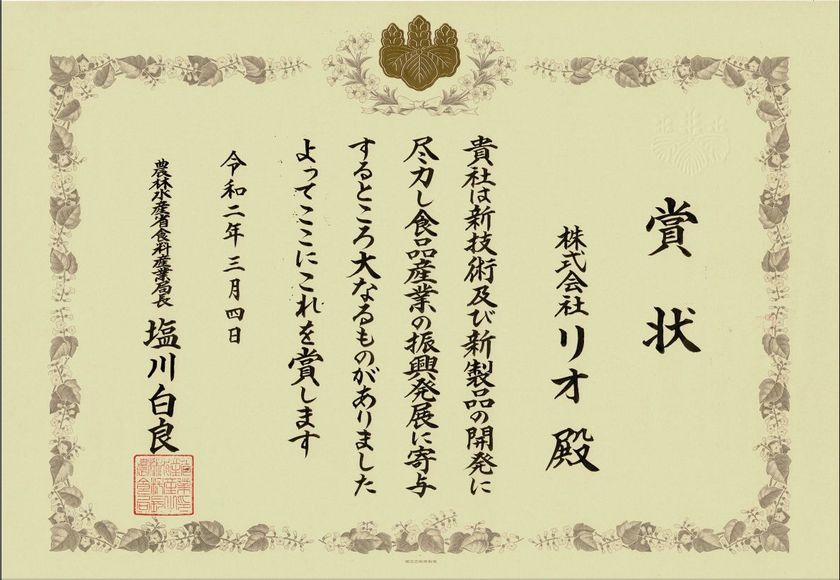 賞状
株式会社リオ殿
貴社は新技術及び新製品の開発に
尽力し食品産業の振興発展に寄与
するところ大なるものがありました
よってここにこれを賞します
令和二年三月四日
農林水産省食料産業局長 塩川白良